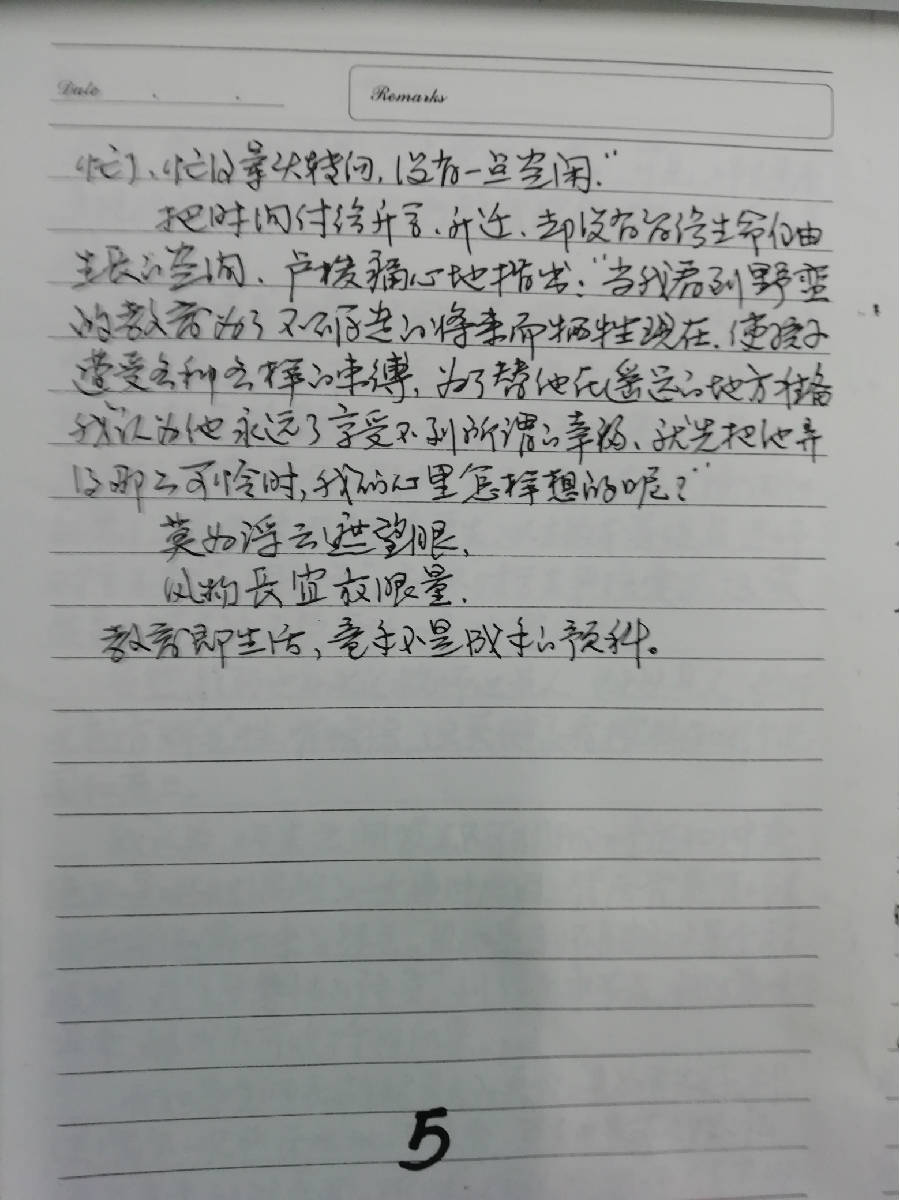 Date
Remarks
忙了、忙得晕头转向,没有一点空闲."
把时间付给升官、升迁、却没有留给生命自由
生长的空间、卢梭痛心地指出:"当我看到野蛮
的教育为了不可靠的将来而牺牲现在、使孩子
遭受各种各样的束缚,为了替他在遥远的地方准备
我认为他永远了享受不到所谓的幸福、就先把他弄
得那么可怜时,我的心里怎样想的呢?"
莫为浮云遮望眼,
风物长宜放眼量.
教育即生活,童年不是成年的预科。
5